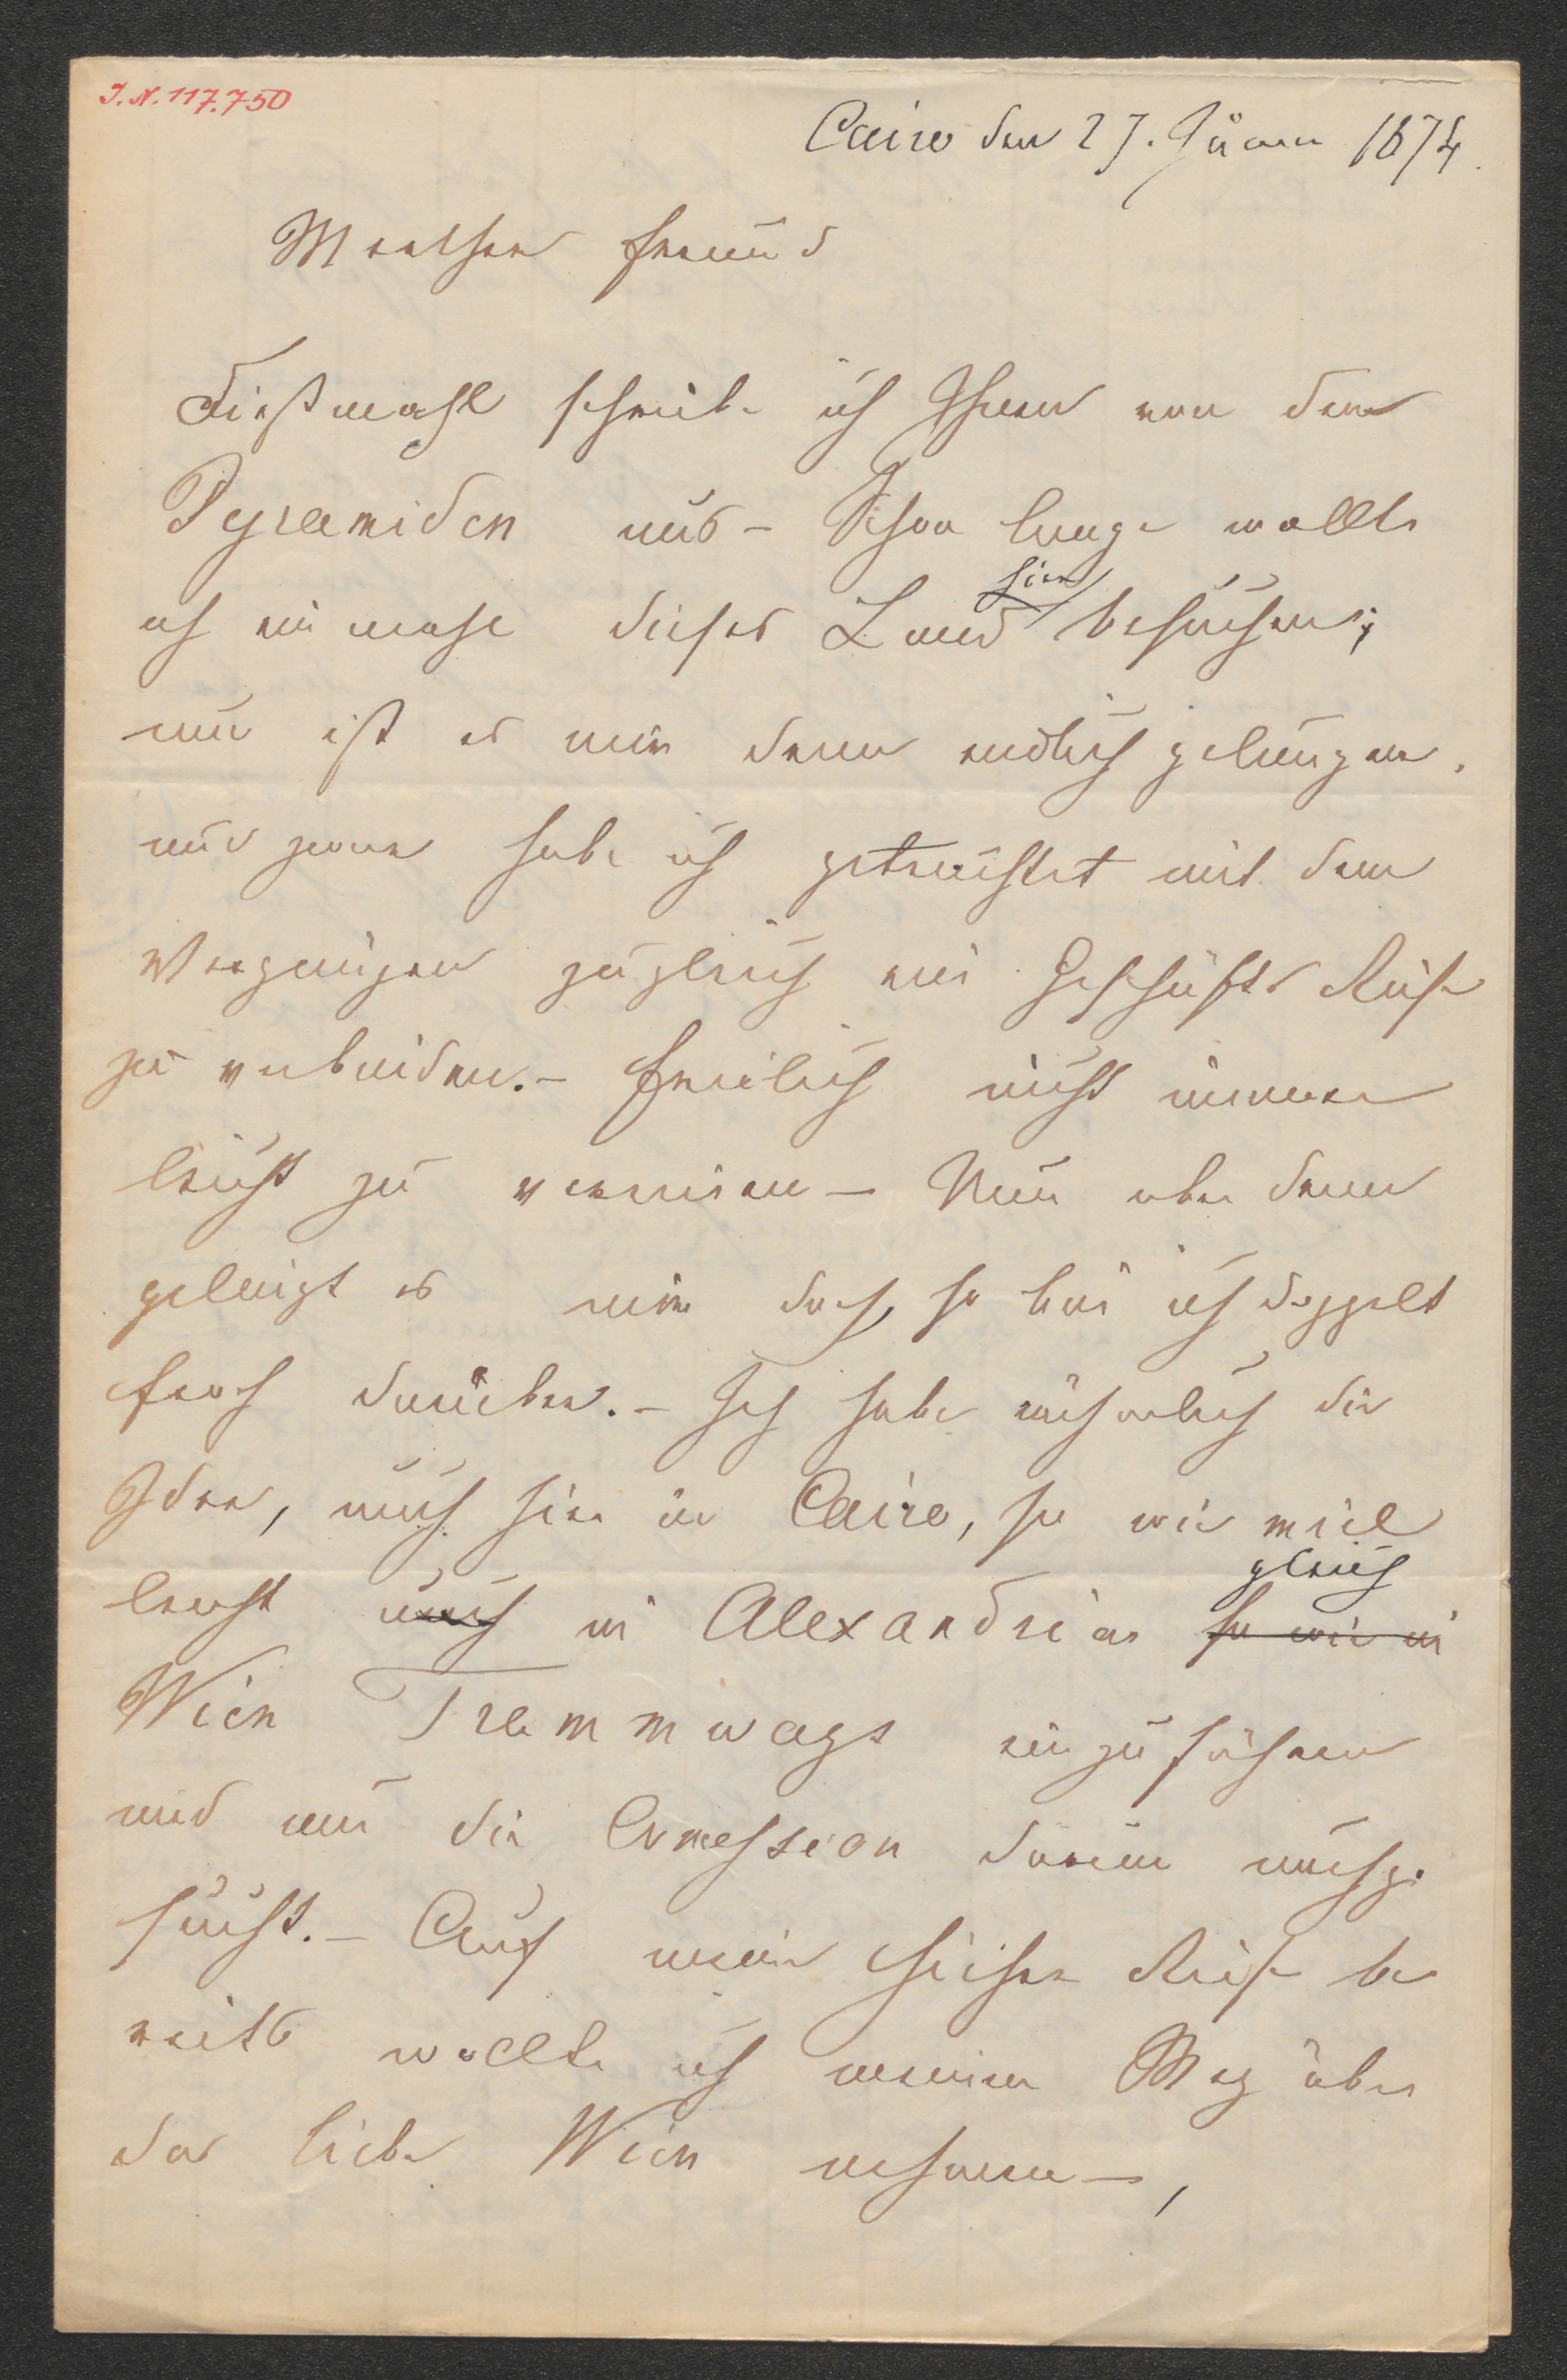 I.N. 117.750
Cairo den 27. Jänner 1874.
Werther Freund
Dießmahl schreibe ich Ihnen von den
Pyramiden aus – Schon lange wollte
ich ein mahl dieses Land hier besuchen;
nun ist es mir denn endlich gelungen,
und zwar habe ich getrachtet mit dem
Vergnügen zugleich eine Geschäfts Reise
zu verbinden. – Freilich nicht immer
leicht zu vereinen – Nun aber denn
gelingt es mir doch, so bin ich doppelt
froh darüber. – Ich habe nähmlich die
Idee, auch hier in Cairo, so wie viel
leicht auch in Alexandrien so wie in gleich
Wien Trammways einzuführen
und um die Conession darum nachge
sucht. – Auf meiner hieher Reise be
reits wollte ich meinen Weg über
das liebe Wien nehmen –,